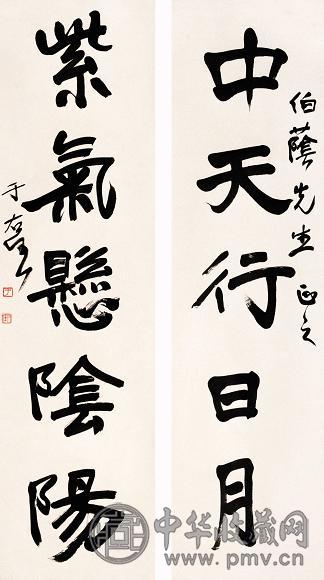 伯蔭先生正之
中天行日月
紫氣懸陰陽
于右任
中华收藏网
www.pmv.cn